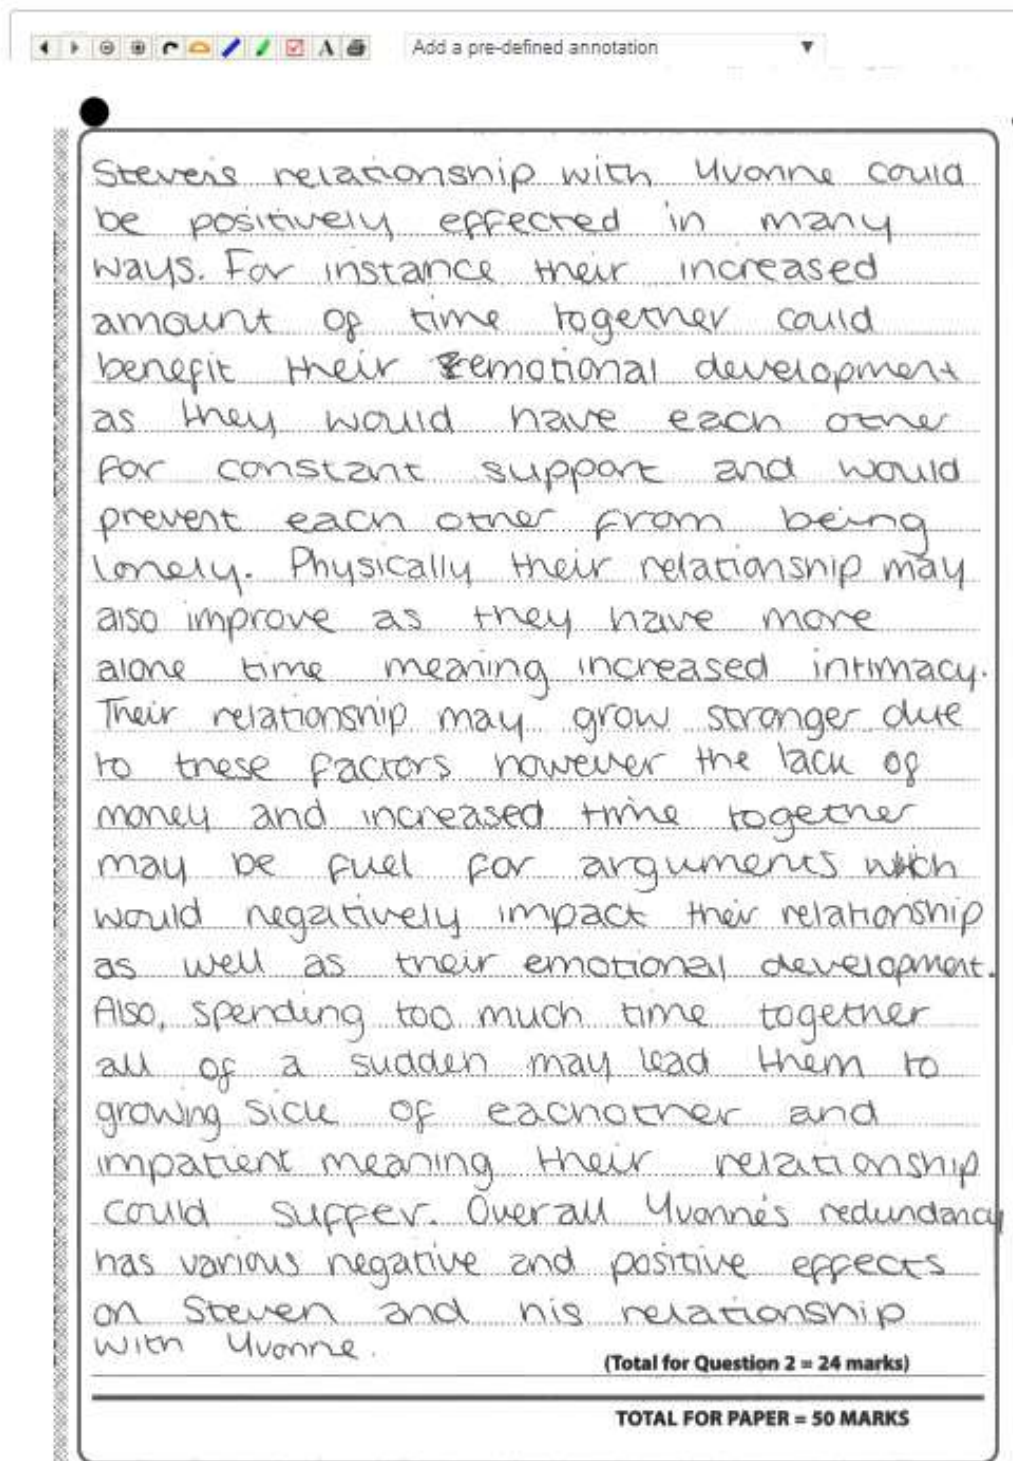 A
Add a pre-defined annotation
Steven's relationship with Yvonne could
be positively effected in many
ways. For instance their increased
amount of time together could
benefit their emotional development
as they would have each other
for constant support and would
prevent each other from being
lonely. Physically their relationship may
also improve as they have more
alone time meaning increased intimacy.
Their relationship may grow stronger due
to these factors however the lack of
money and increased time together
may be fuel for arguments which
would negatively impact their relationship
as well as their emotional development.
Also, spending too much time together
all of a sudden may lead them to
growing sick of eachother and
impatient meaning their relationship
could suffer. Overall Yvonne's redundancy
has various negative and positive effects
on Steven and his relationship
with Yvonne.
(Total for Question 2 = 24 marks)
TOTAL FOR PAPER = 50 MARKS